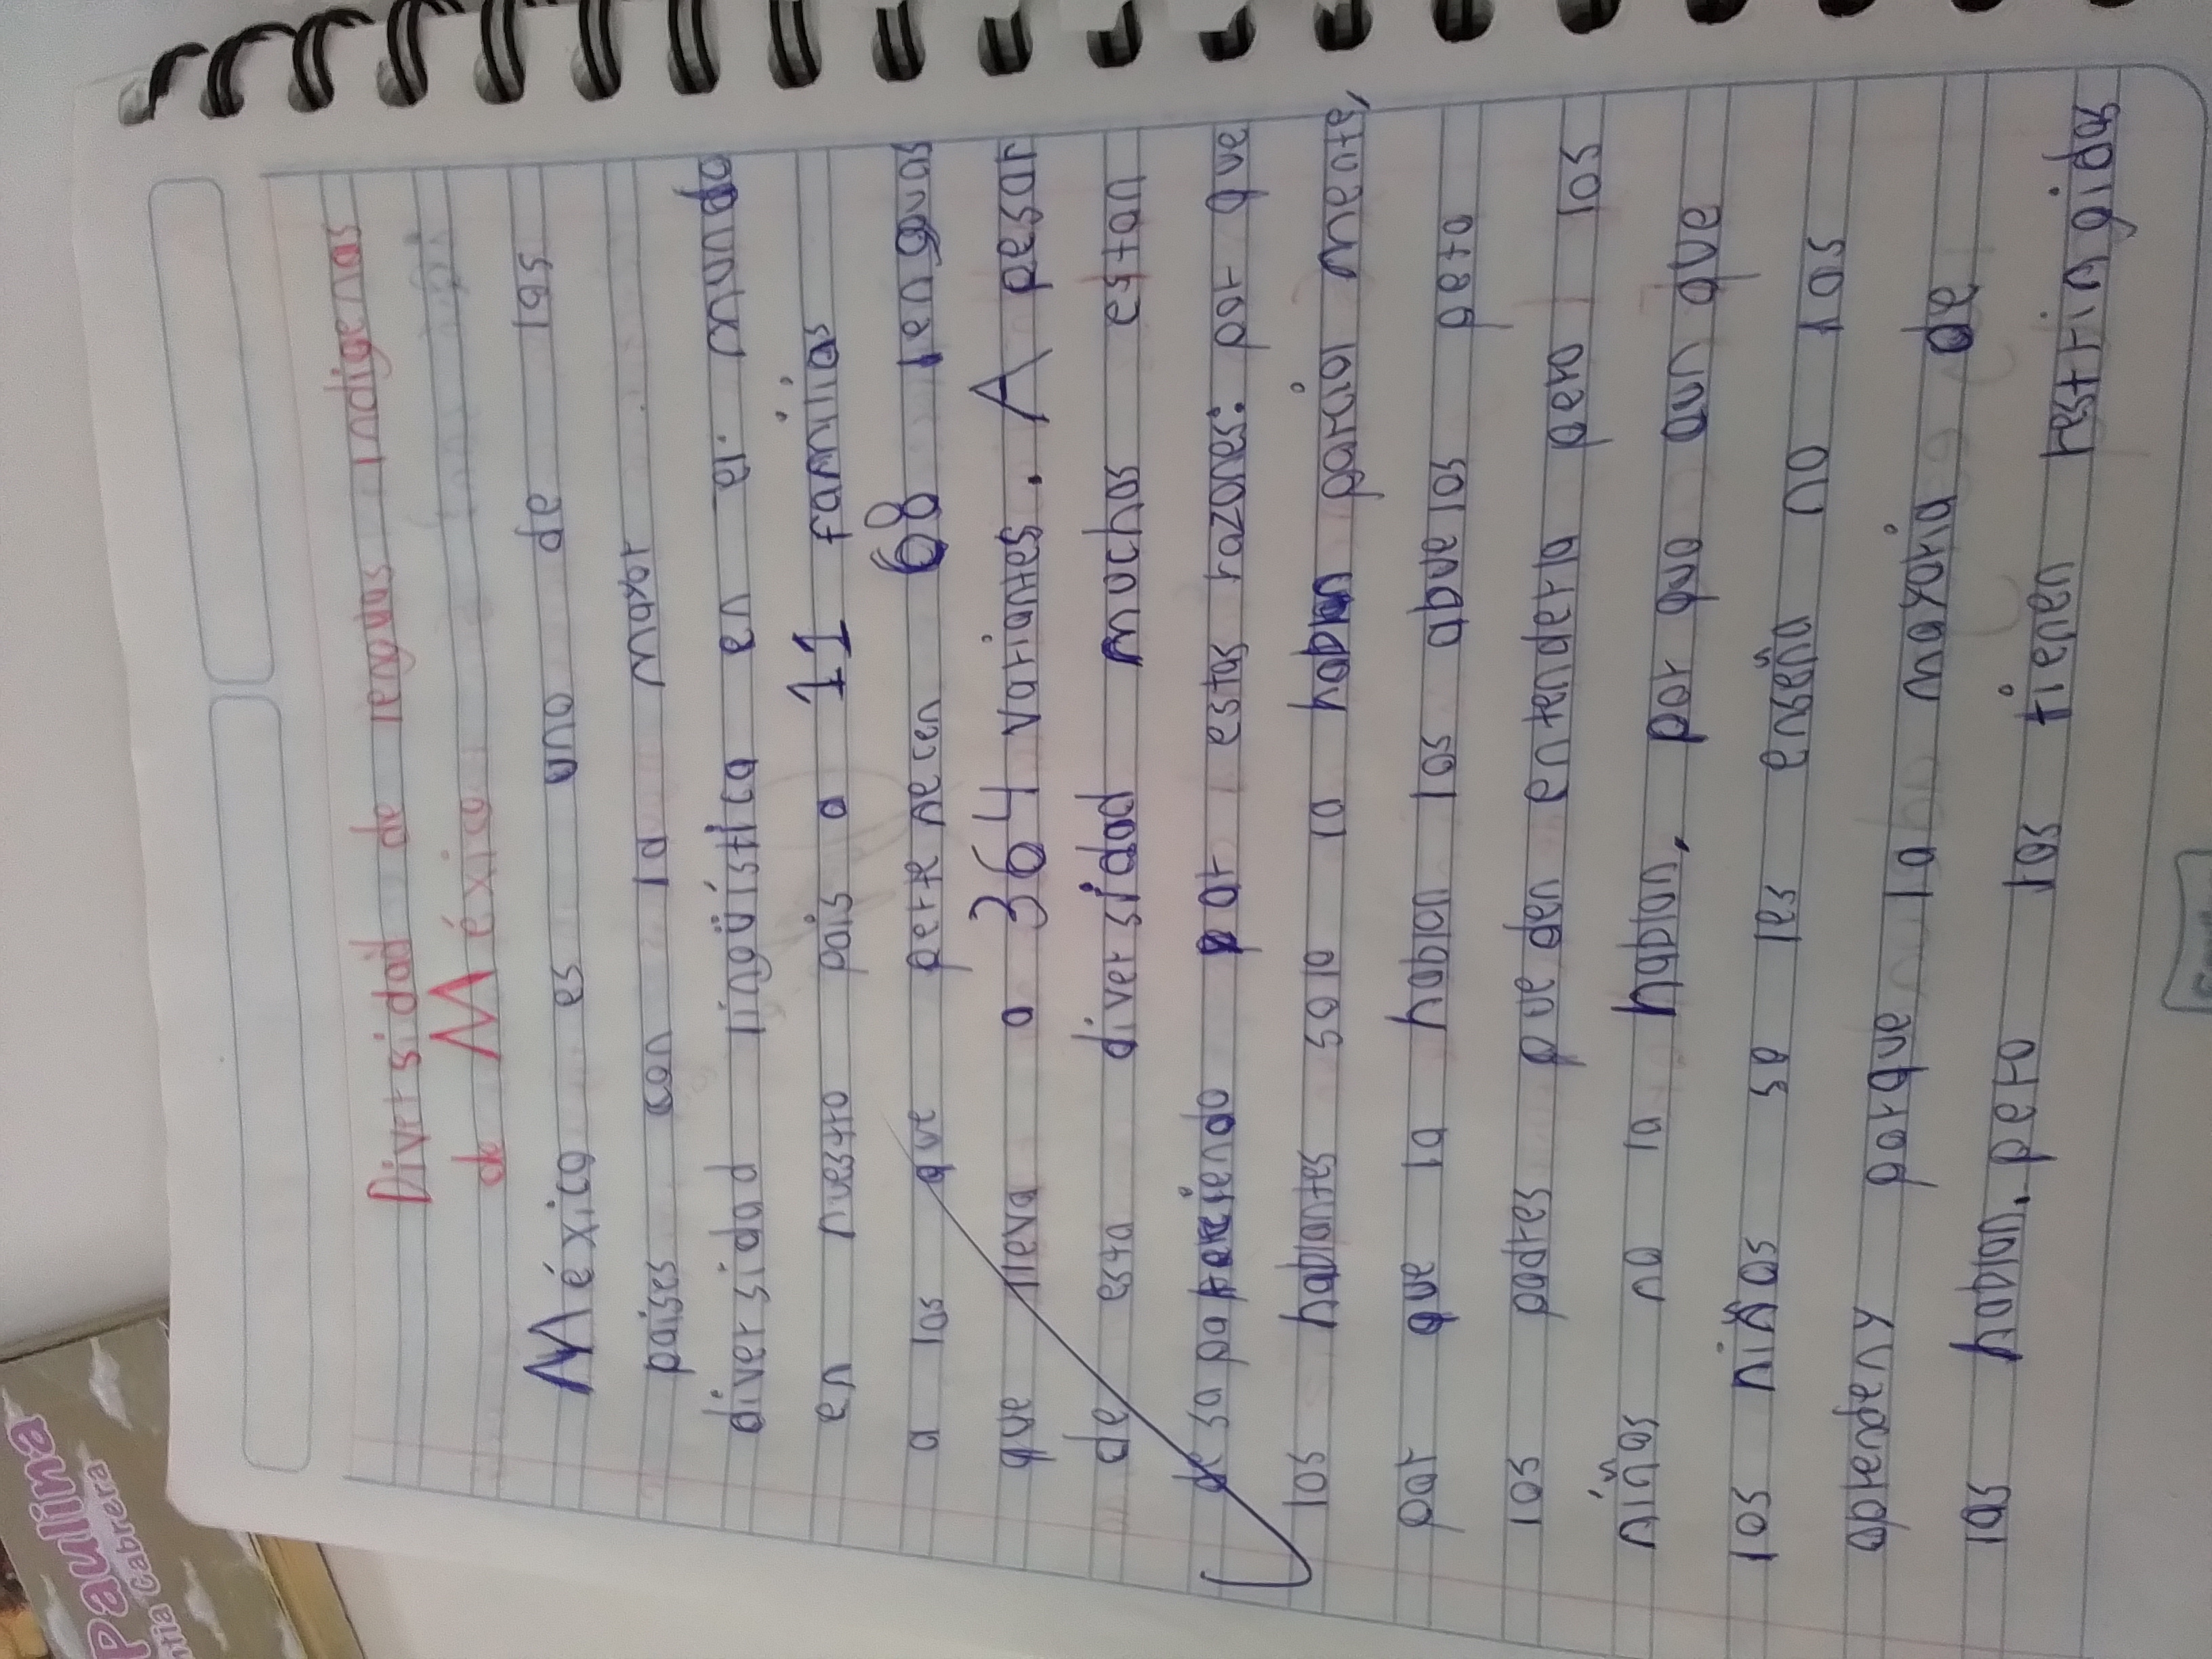 Diversidad de lenguas indigenas
de México
México es uno de los
paises con la mayor
diversidad lingüística en el mundo
en nuestro pais a 11 familias
a las que pertenecen 68 lenguas
que lleva a 364 variantes. A pesar
de esta diversidad muchas estan
desapareciendo por estas razones: por que
los hablantes solo la hablan maioria muere,
por que la hablan los abuelos pero
los padres pueden entenderla pero los
niños no la hablan, por que aun que
los niños se les enseña no los
aprenden y porque la mayoria de
las hablan, pero las tienen restringidas
Paulina
ntia Cabrera